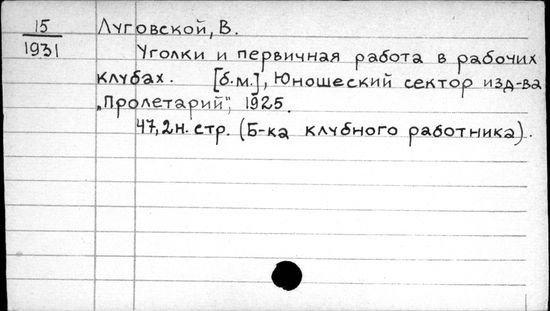 15
1931
Луговской, В.
Уголки и первичная работа в рабочих
клубах. [б.м.], Юношеский сектор изд-ва
„Пролетарий", 1925.
47, 2н. стр. (Б-ка клубного работника).